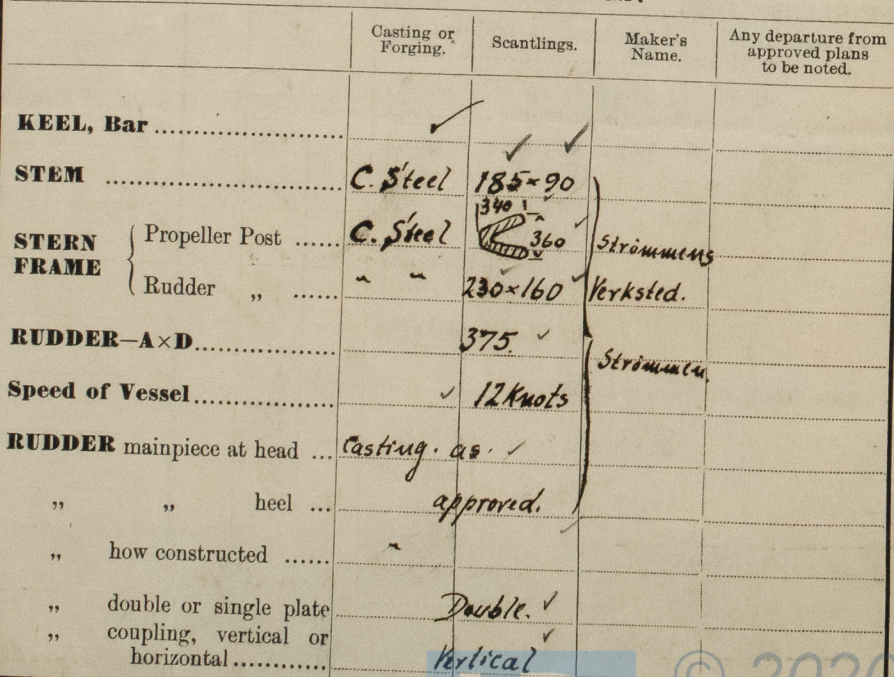 Casting or Forging. Scantlings. Maker's Name. Any departure from approved plans to be noted.
KEEL, Bar ✓
STEM C. Steel 185 × 90
STERN FRAME { Propeller Post C. Steel 340 360 Strömmens
Rudder „ " " 230×160 Verksted.
RUDDER—A×D 375. ✓ Strömmen.
Speed of Vessel ✓ 12 Knots
RUDDER mainpiece at head ... Casting. as. ✓
„ „ heel ... approved.
„ how constructed ...... "
„ double or single plate Double. ✓
„ coupling, vertical or
horizontal ........... Vertical ✓
© 2020